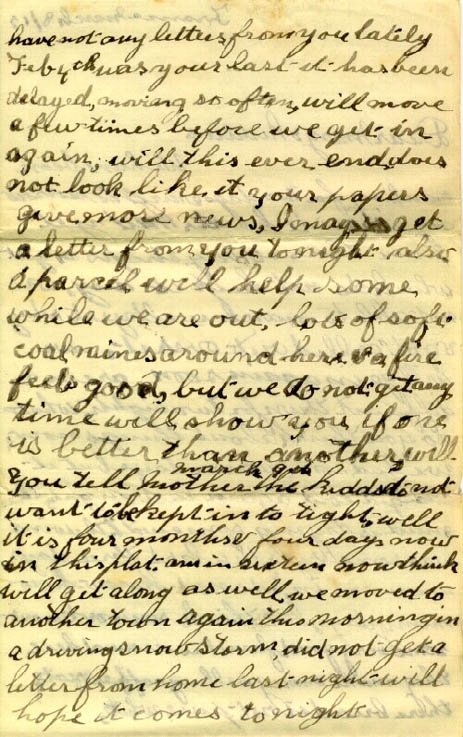 have not any letters from you lately
Feb 4th was your last it has been
delayed, moving so often, will move
a few times before we get in
again, will this ever end, does
not look like it your papers
give more news, I may get
a letter from you tonight also
a parcel will help some
while we are out, lots of soft
coal mines around here & a fire
feels good, but we do not get any
time will show you if one
is better than another will
march get
you tell Mother the kidds do not
want to be kept in to tight, well
it is four months & four days now
in this plat. am in sixteen now think
will get along as well, we moved to
another town again this morning in
a driving snow storm, did not get a
letter from home last night will
hope it comes tonight